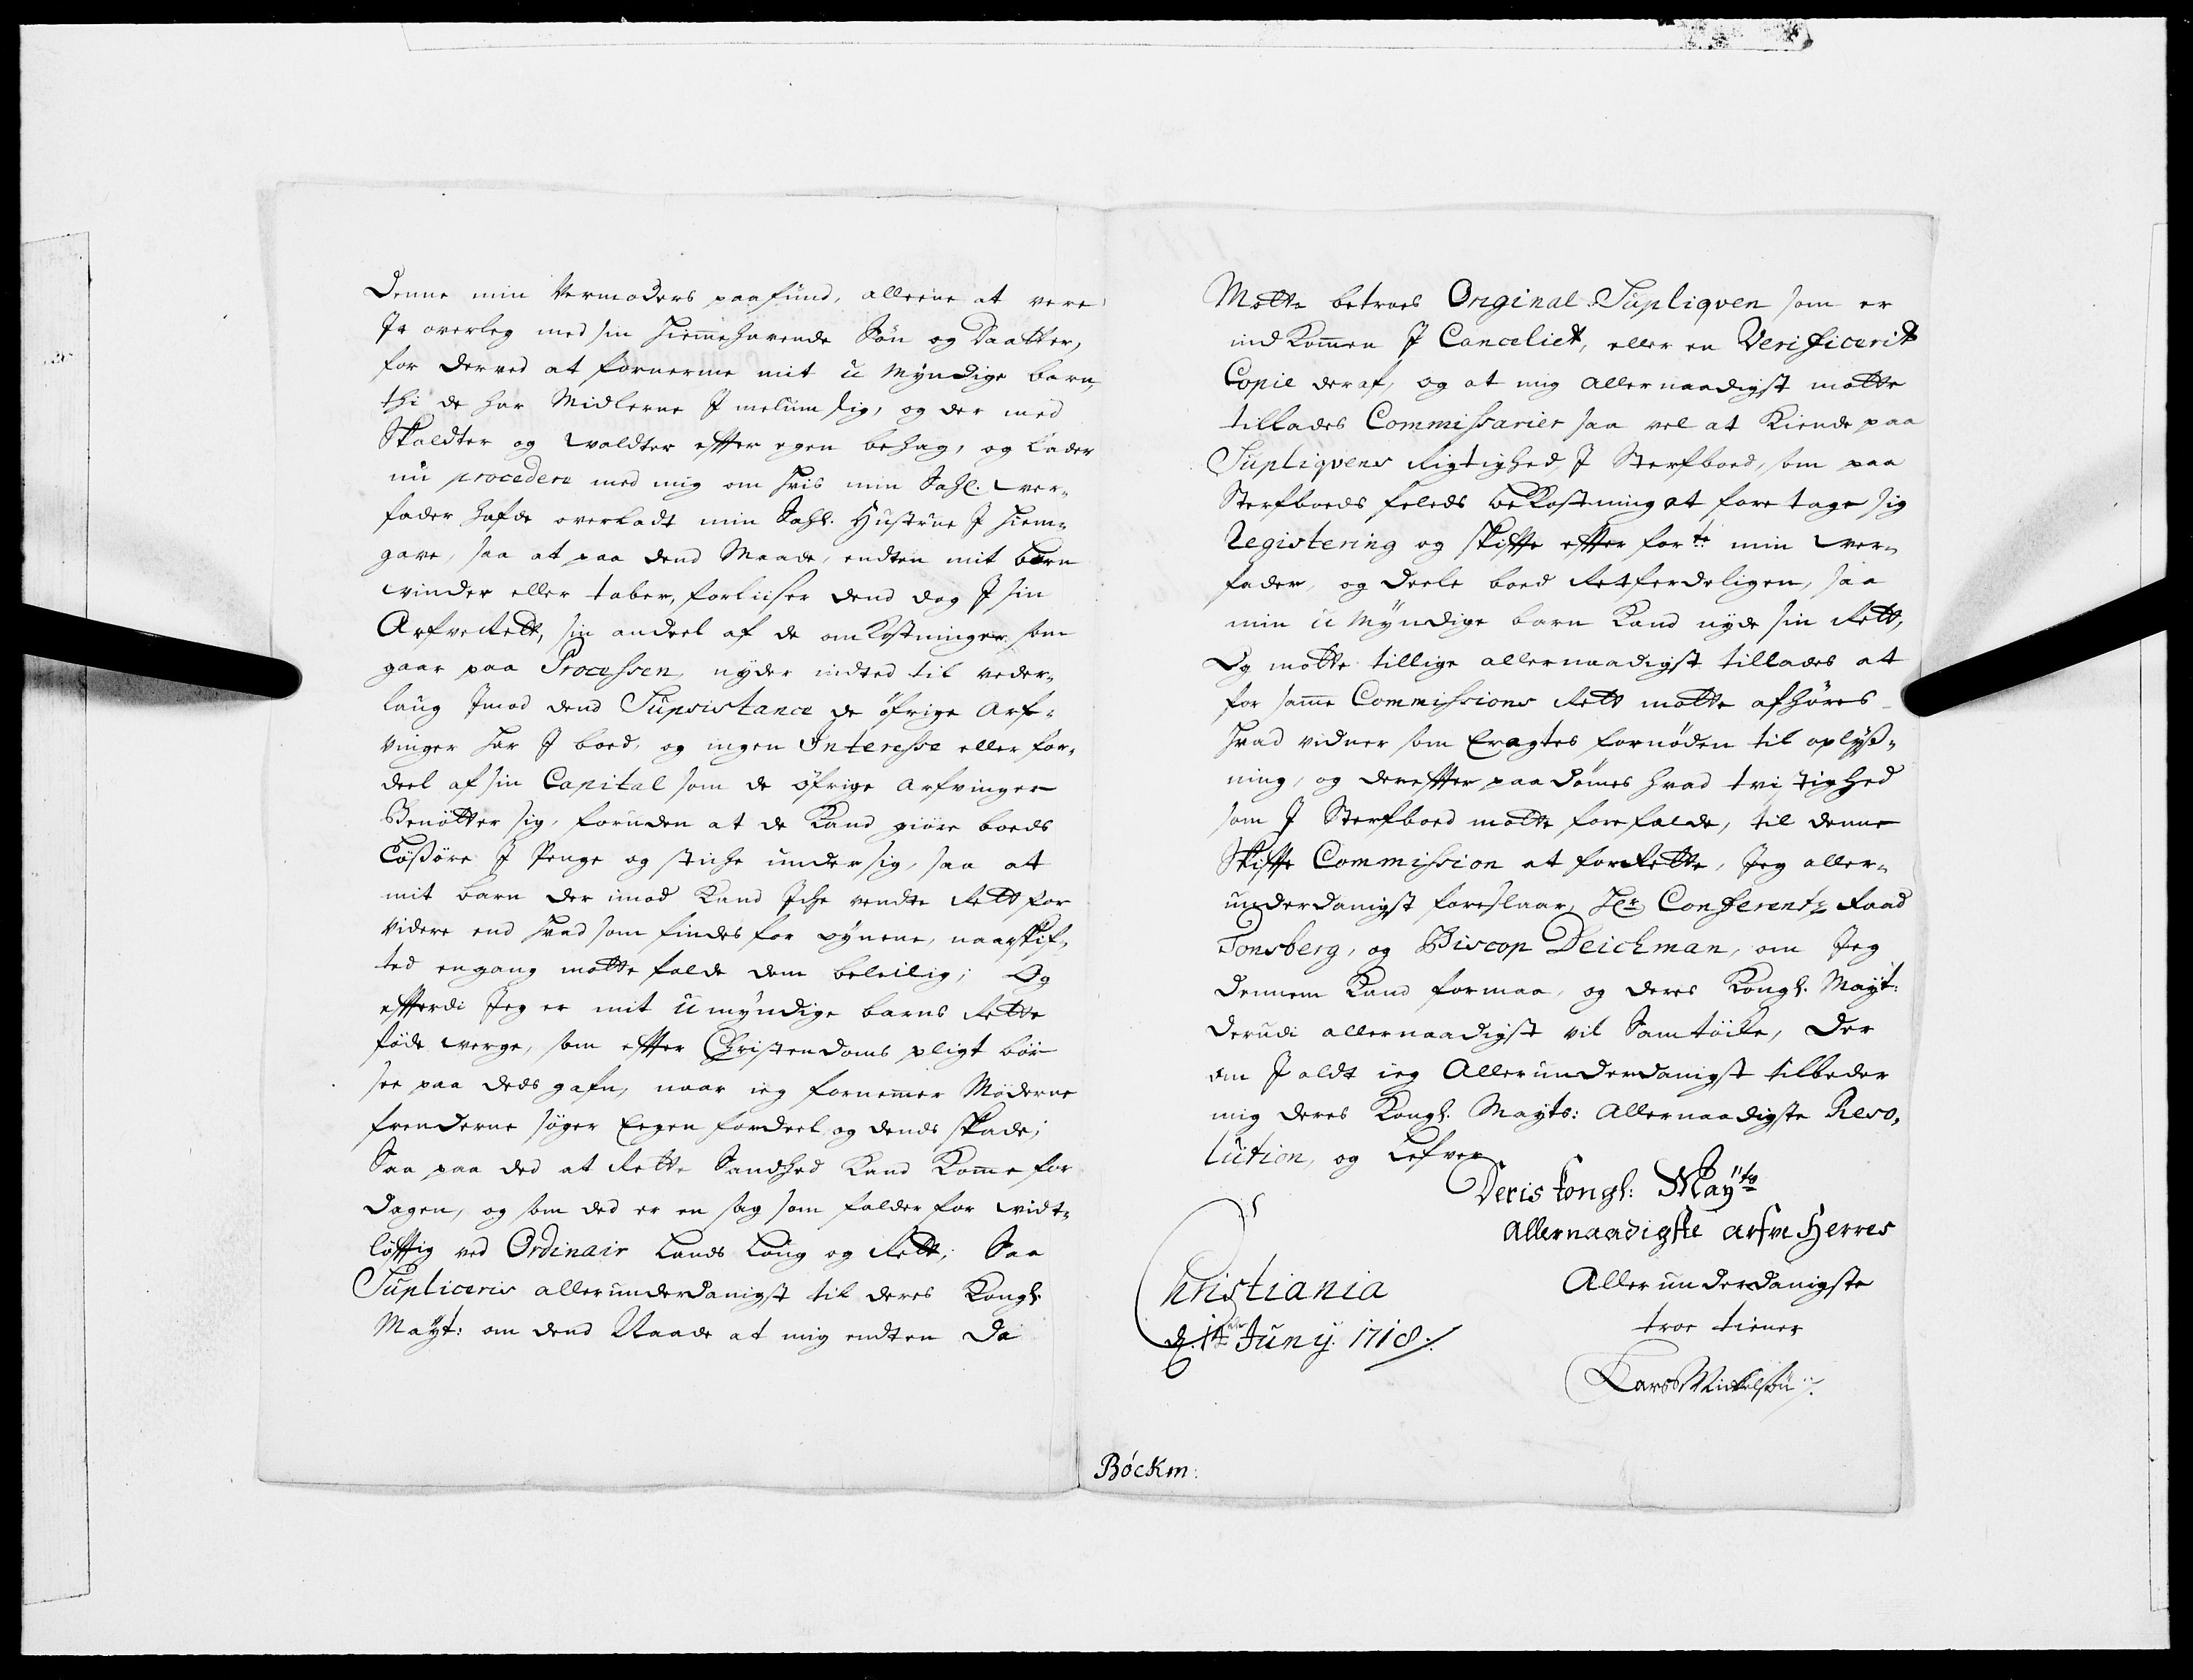 Denne min Vermoders paafund, alleene at vere
J overleg med sin hiemehavende Søn og Daatter,
for derved at fornerme mit u Myndige barn,
thi de har Midlerne J melum sig, og der med
Skaldter og Valdter effter egen behag, og lader
nu procedere med mig om hvis min Sahl. Ver¬
fader hafde overladt min Sahl. Hustrue J hiem¬
gave, saa at paa dend Maade, endten mit barn
vinder eller taber, forliiser dend dog J sin
ArfveRett, sin andeel af de omkostninger som
gaar paa Processen, nyder indted til veder¬
laug Jmod dend Supsistance de öfrige Arf¬
vinger har J boed, og ingen Interesse eller for¬
deel af sin Capital som de öfrige arfvinger
Benötter sig, foruden at de Kand giöre boeds
Lößöre J Penge og stiche under sig, saa at
mit barn der imod Kand Jche vendte Rett for
videre end hvad som findes for öynene, naar skif¬
ted engang motte falde dem beleilig; Og
efterdi Jeg er mit u myndige barns Rette
föde verge, som effter Christendoms pligt bör
see paa deds gafn, naar ieg fornemer Möderne
frenderne söger Eegen fordeel og dends skade;
Saa paa ded at Rette Sandhed Kand Kome for
dagen, og som ded er en sag som falder for vidt¬
löfftig ved Ordinair Lands Laug og Rett; Saa
Supliceris allerunderdanigst til deres Kongl.
Mayt: om dend Naade at mig endten da
Motte betroes Orginal Supliqven som er
ind Komen J Canceliet, eller en Verificerit
Copie deraf, og at mig allernaadigst motte
tillades Commissarier saa vel at Kiende paa
Supliqvens Rigtighed J Sterfboed, som paa
Sterfboeds feleds beKostning at foretage sig
Registering og skiffte effter for te min Ver¬
fader, og deele boed Retferdeligen, saa
min u Myndige barn Kand nyde sin Rett,
Og motte tillige allernaadigst tillades at
for same Commissions Rett motte afhöres
hvad vidner som Eragtes fornöden til oplyß¬
ning, og dereffter paadömes hvad tvistighed
som J Sterfboed motte forefalde, til denne
Skiffte Commission at forRette, Jeg aller¬
underdanigst foreslaar, Hr Conferentz Raad
Tonsberg, og Biscop Deichman, om Jeg
dennem Kand formaa, og deres Kongl. Mayt:
derudi allernaadigst vil Samtöcke, der
om J aldt ieg Allerunderdanigst tilbeder
mig deres Kongl. Mayts: Allernaadigste Reso¬
lution, og lefver
Deris kongl: Mayts
Allernaadigste arfve Herres
Christiania
Allerunderdanigste
d. 14 Juny. 1718
troe tiener
Lars Mickelsön
Böckm: